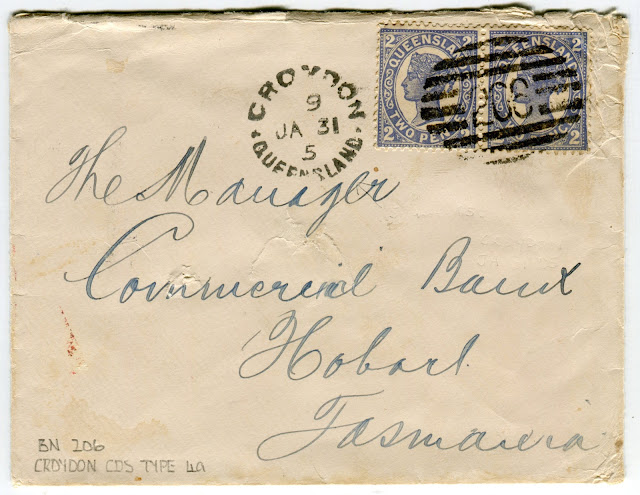 QUEENSLAND QUEENSLAND
2 2 2
TWO PENCE
2 2 2
CROYDON
9
JA 31
5
QUEENSLAND
The Manager
Commercial Bank
Hobart
Tasmania
BN 206
CROYDON CDS TYPE 4a